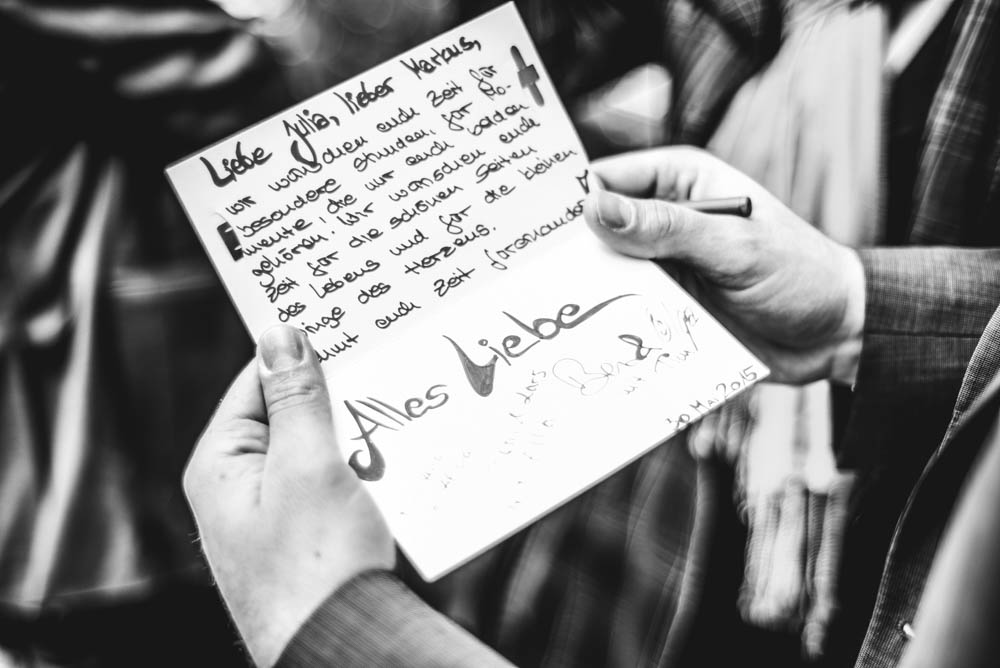 Liebe Julia, lieber Markus,
wir wünschen euch Zeit für
besondere Stunden, für Mo-
mente, die nur euch beiden
gehören. Wir wünschen euch
Zeit für die schönen Seiten
des Lebens und für die kleinen
Dinge des Herzens.
euch Zeit füreinander
Alles Liebe
Ben &
30 Mai 2015